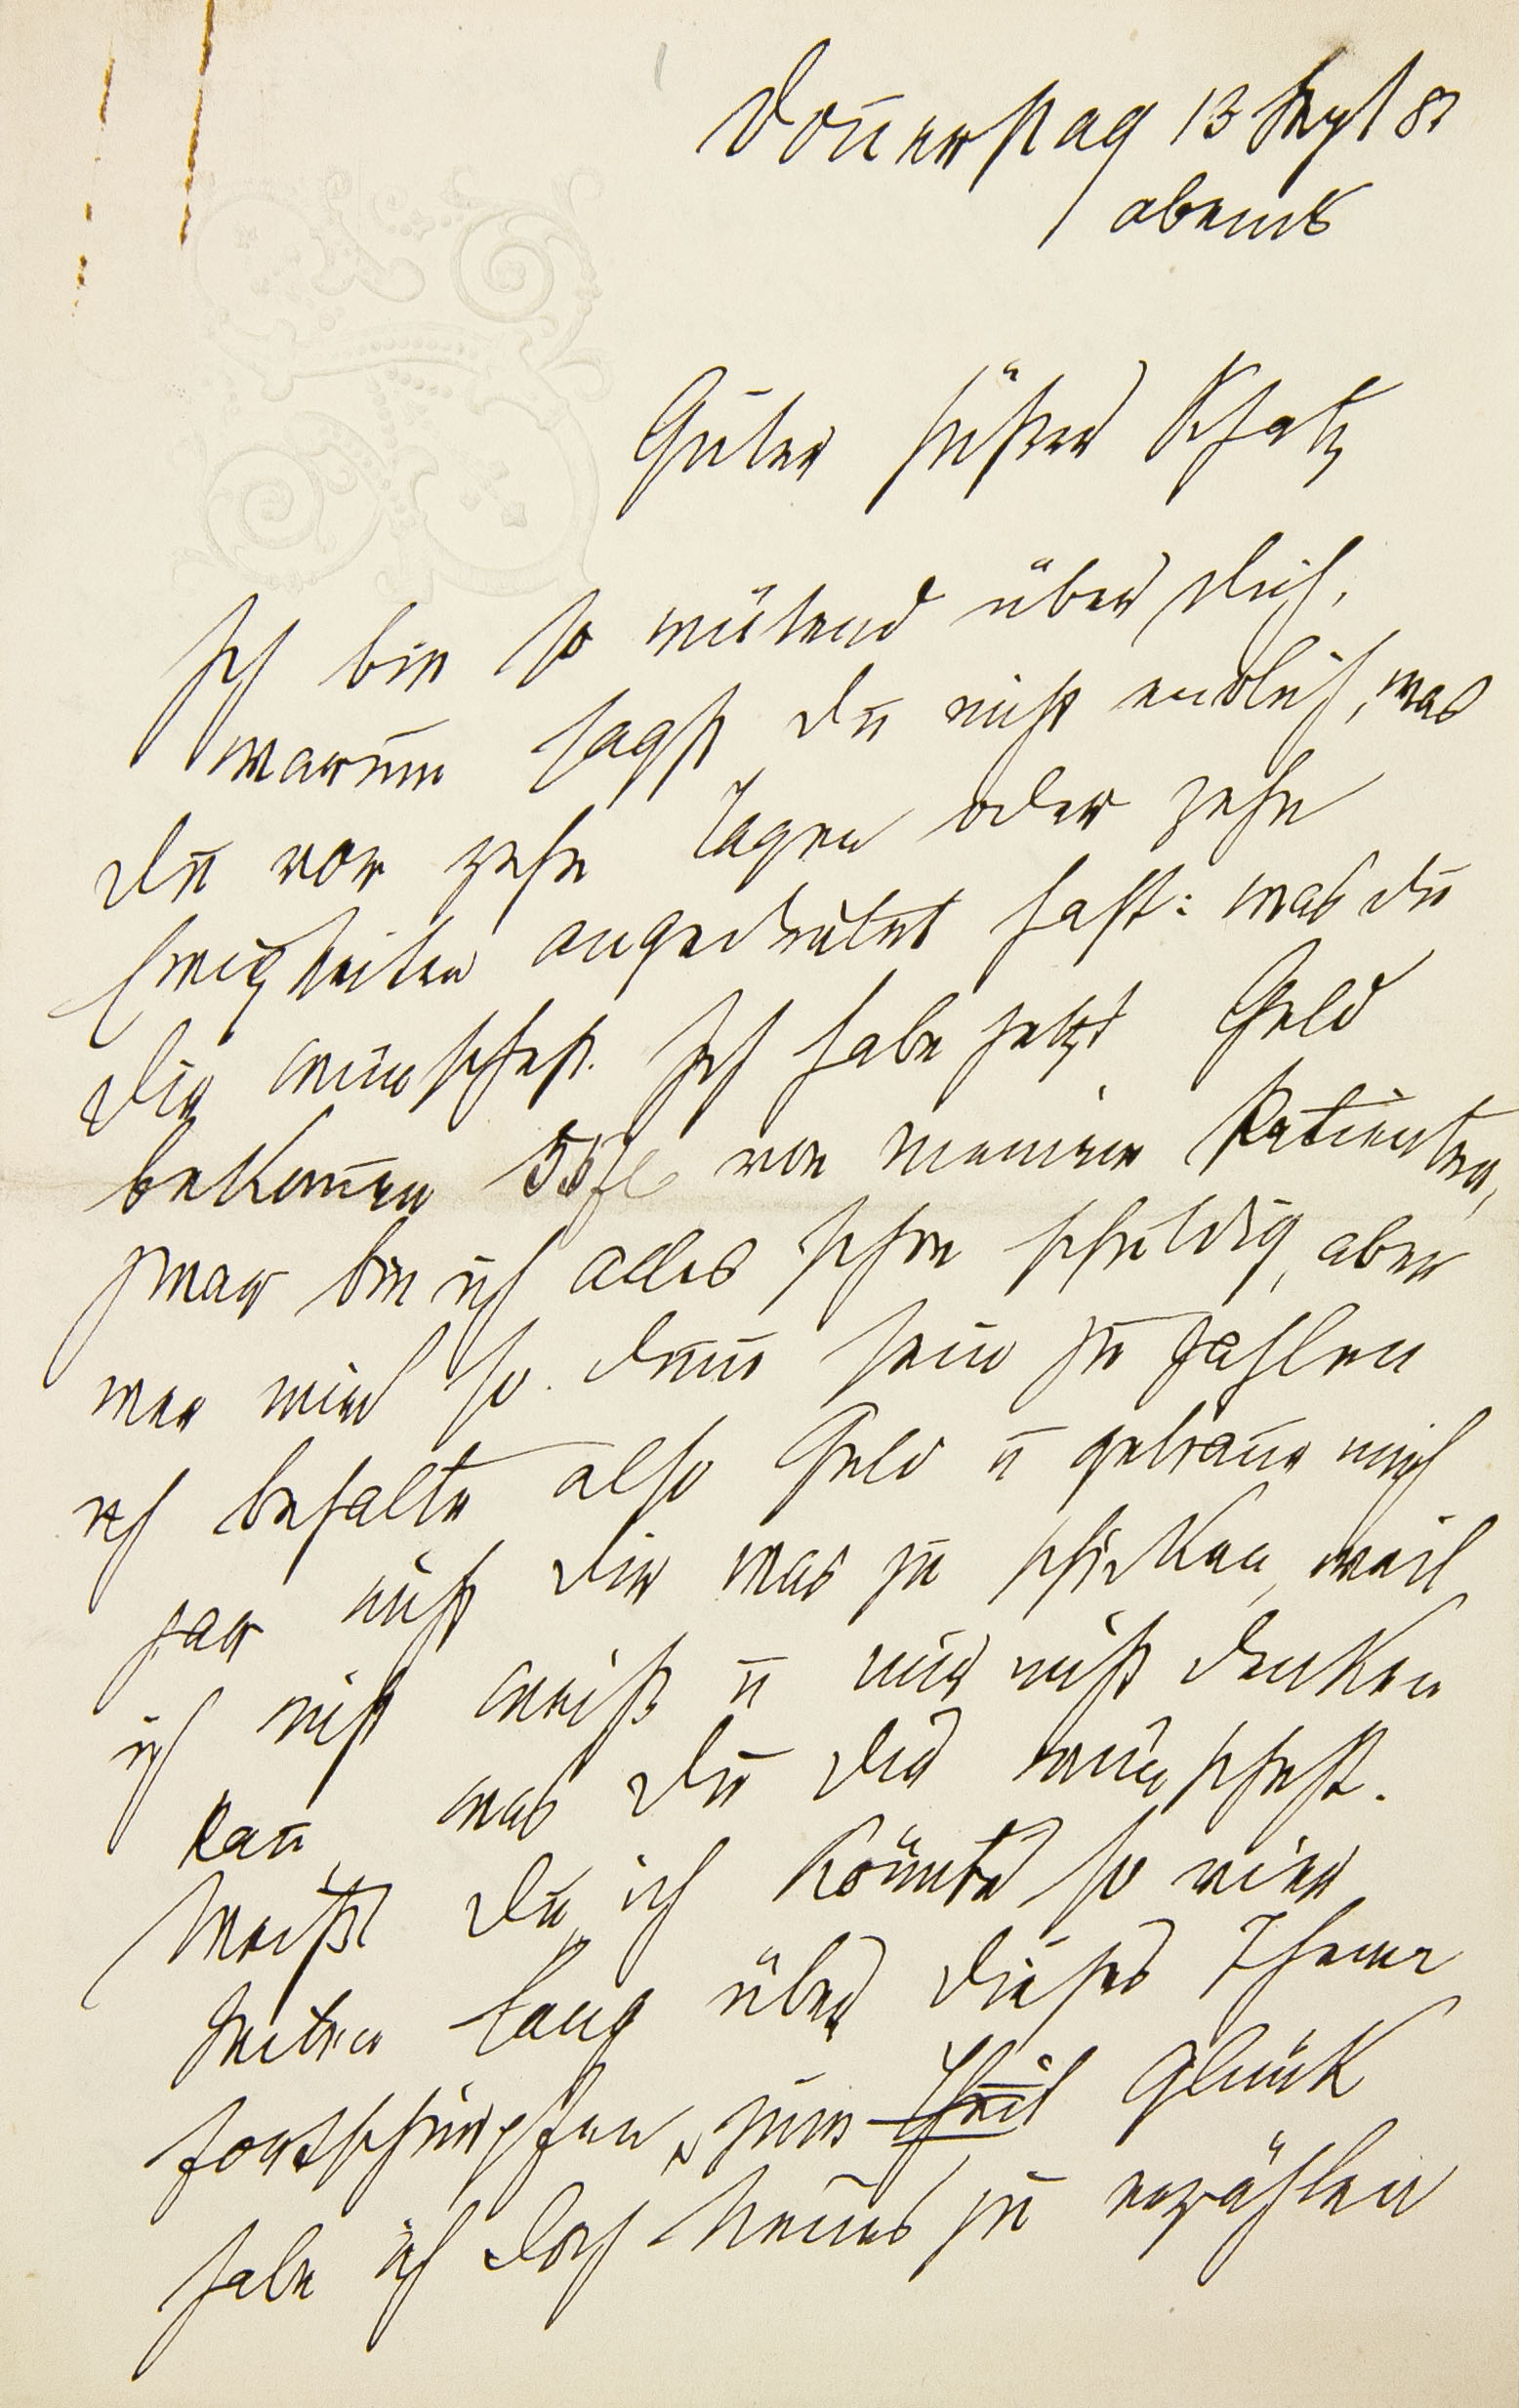 Donnerstag 13 Sept 83
abends
Guter süßer Schatz
Ich bin so wütend über dich,
warum sagst du nicht endlich, was
du vor zehn Tagen oder zehn
Ewigkeiten angedeutet hast: was du
dir wünschest. Ich habe jetzt Geld
bekommen 55 fl von meinem Patienten,
zwar bin ich alles schon schuldig, aber
wer wird so dumm sein zu zahlen
ich behalte also Geld u getraue mich
gar nicht dir was zu schicken, weil
ich nicht weiß u mir nicht denken
kann was du dir wünschest.
Weißt du, ich könnte so vier
Seiten lang über dieses Thema
fortschimpfen, zum Theil Glück
habe ich doch Neues zu erzählen